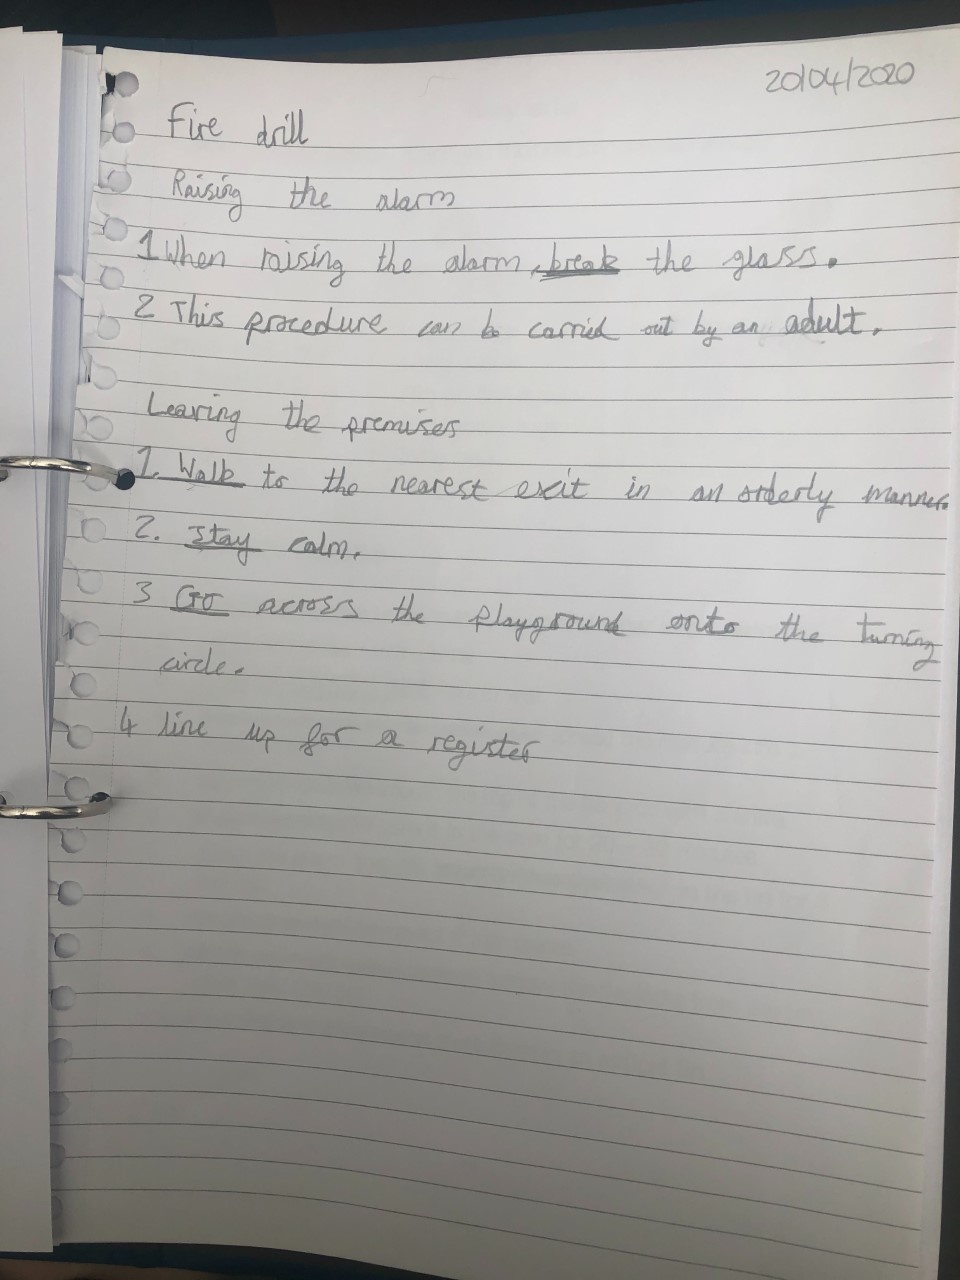 20/04/2020
Fire drill
Raising the alarm
1 When raising the alarm, break the glass.
2 This procedure can be carried out by an adult.
Leaving the premises
1. Walk to the nearest exit in an orderly manner.
2. Stay calm.
3 Go across the playground onto the turning
circle.
4 line up for a register